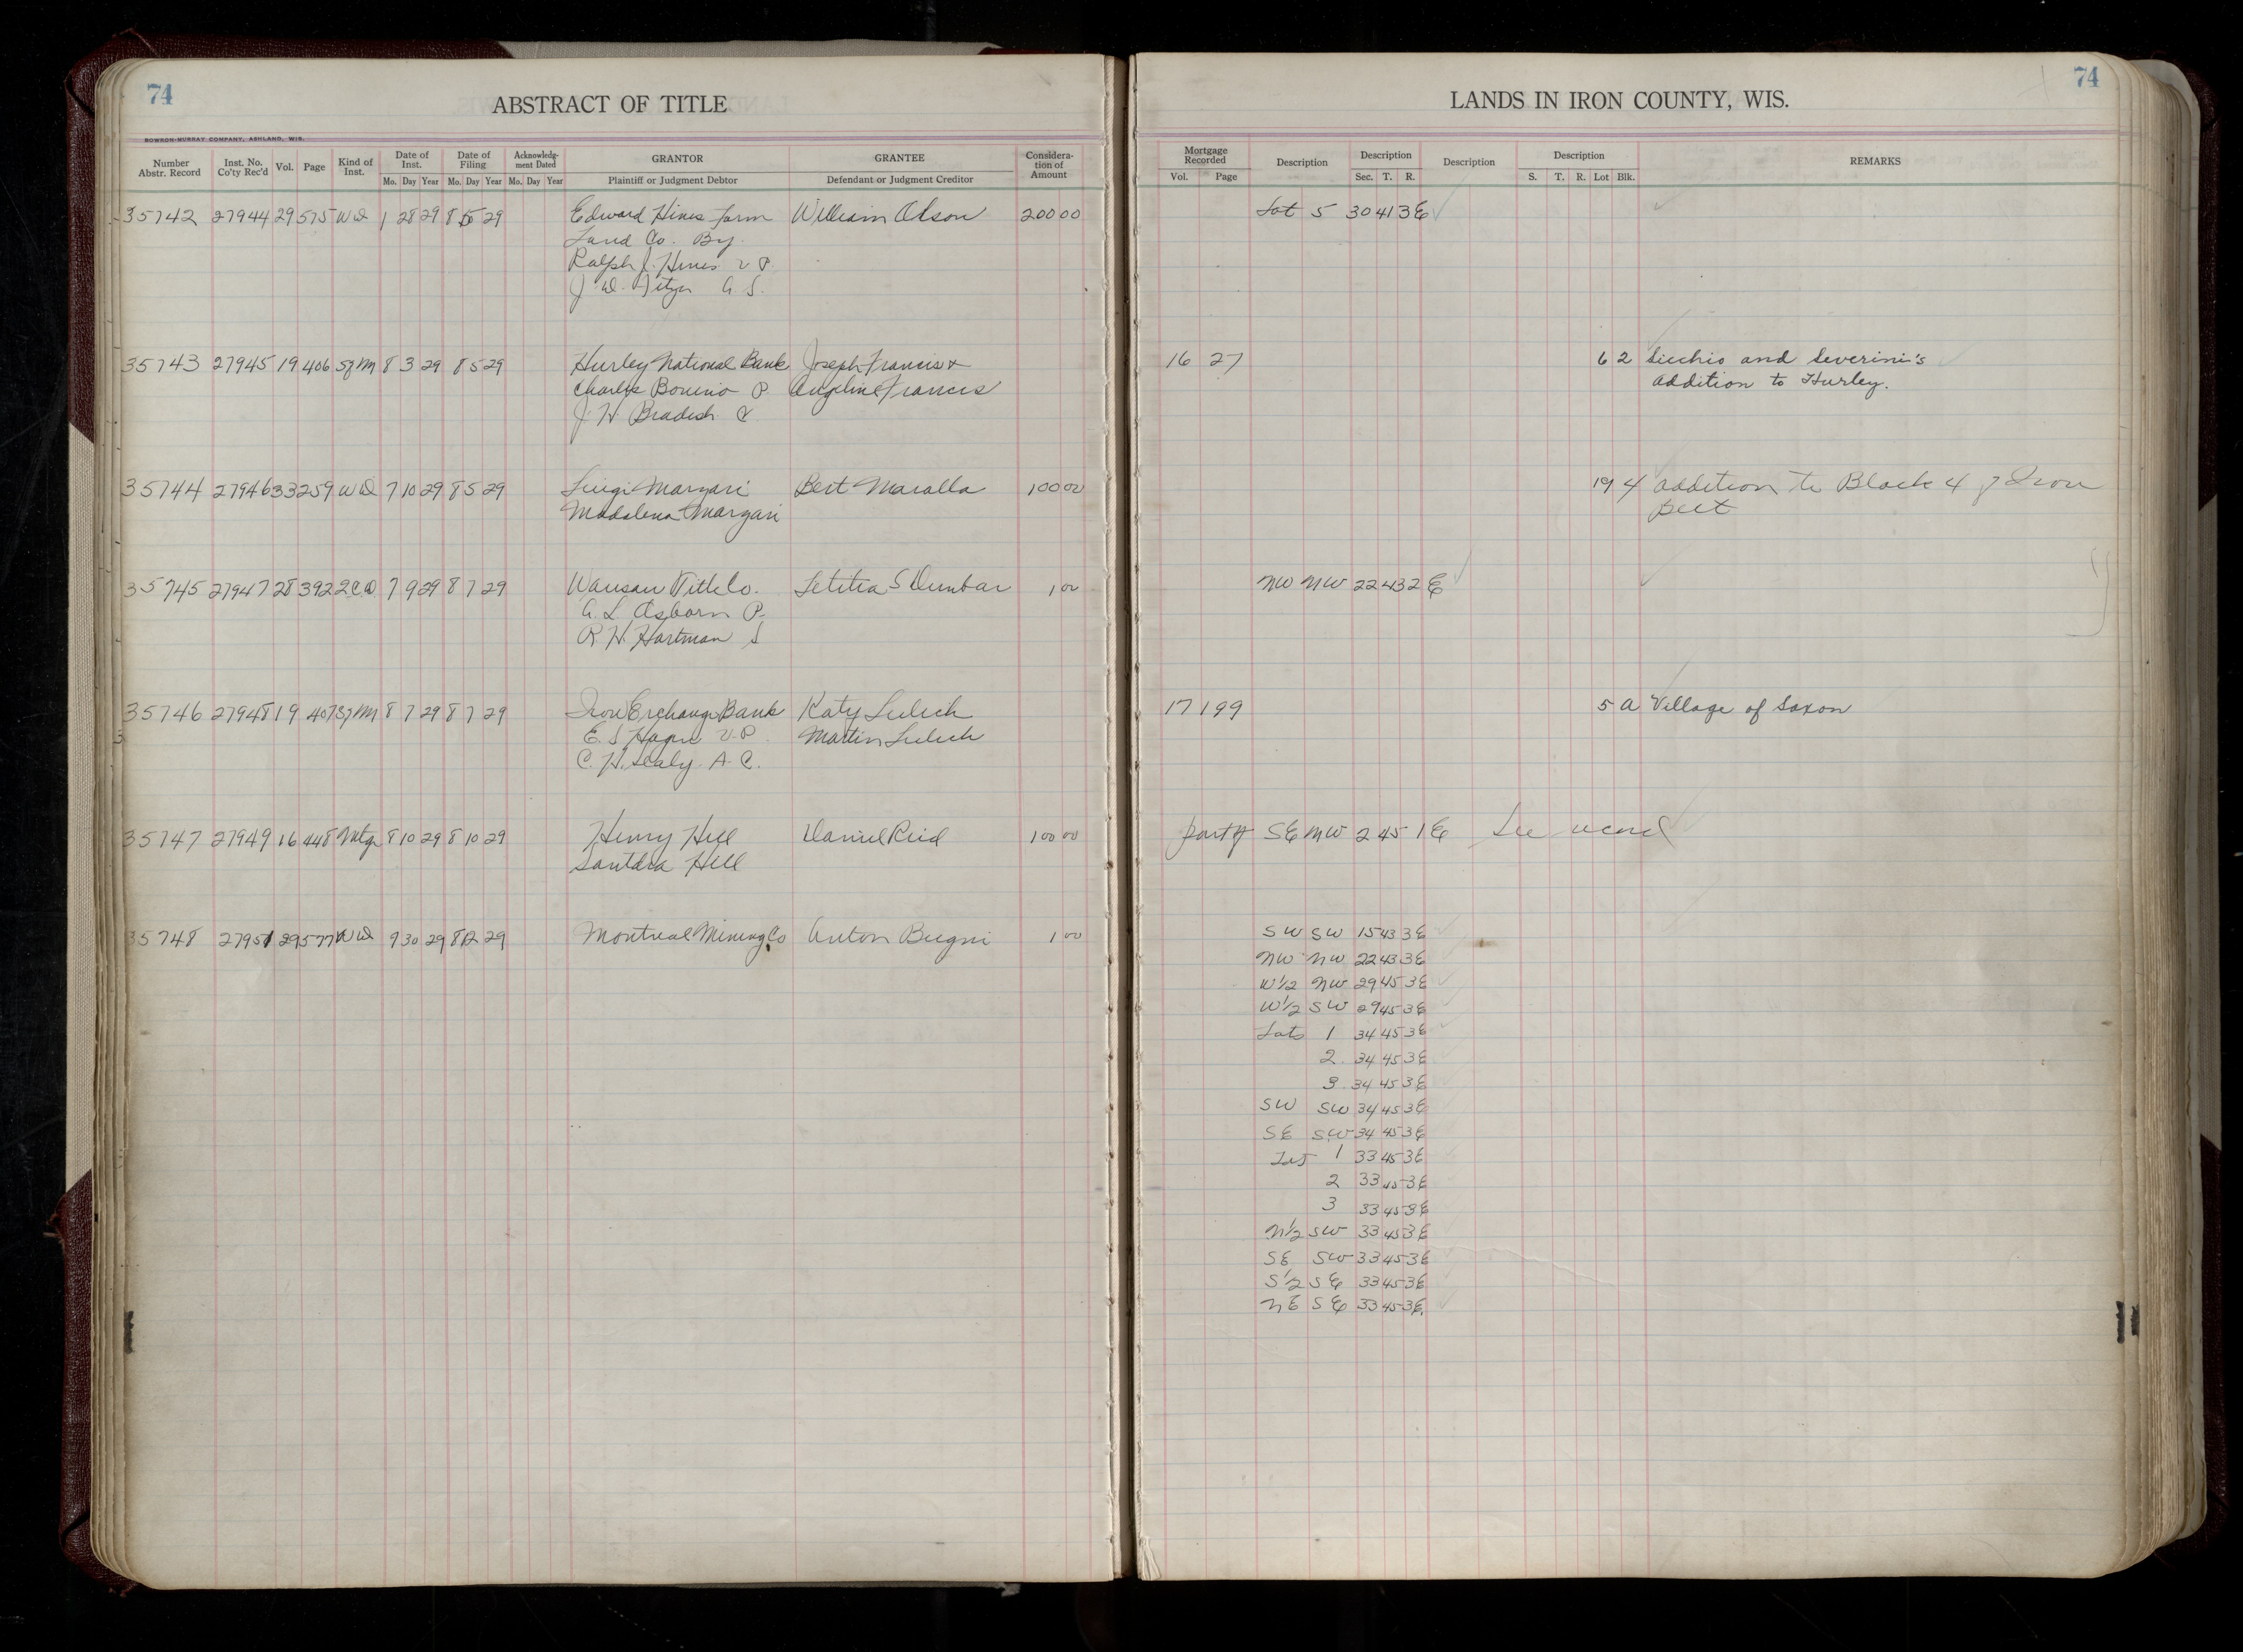 74
ABSTRACT OF TITLE
LANDS IN IRON COUNTY, WIS.
74
BOWRON-MURRAY COMPANY, ASHLAND, WIS.
Number Abstr. Record | Inst. No. Co'ty Rec'd | Vol. | Page | Kind of Inst. | Date of Inst. Mo. Day Year | Date of Filing Mo. Day Year | Acknowledgment Dated Mo. Day Year | GRANTOR Plaintiff or Judgment Debtor | GRANTEE Defendant or Judgment Creditor | Consideration of Amount | Mortgage Recorded Vol. Page | Description | Description Sec. T. R. | Description | Description S. T. R. Lot Blk. | REMARKS
35742 27944 29 575 WD 1 28 29 8 5 29 Edward Hines Farm William Olson 200 00 Lot 5 30 41 3E
Land Co. By
Ralph J. Hines V P.
J. W. A S.
35743 27945 19 406 8 3 29 8 5 29 Hurley National Bank Joseph Francis & 16 27 6 2 Sicchio and Severini's
Charles Bonino P. Angeline Francis Addition to Hurley.
J. H. Bradish C.
35744 27946 33 259 WD 7 10 29 8 5 29 Luigi Margari Bert Maralla 100 00 19 4 Addition to Block 4 of Iron
Madalena Margari Belt
35745 27947 28 392 2CD 7 9 29 8 7 29 Wausau Title Co. Letitia S Dunbar 1 00 NW NW 22 43 2E
A. L. Osborn P.
R. H. Hartman S
35746 27948 19 407 8 7 29 8 7 29 Iron Exchange Bank Katy Lulich 17 199 5 A Village of Saxon
E. S. V.P. Martin Lulich
C. H. Sealy A.C.
35747 27949 16 448 Mtg 8 10 29 8 10 29 Henry Hill Daniel Reid 100 00 part of SE NW 2 45 1E See record
Santdra Hill
35748 27951 29 577 WD 9 30 29 8 12 29 Montreal Mining Co Anton Bugni 1 00 SW SW 15 43 3E
NW NW 22 43 3E
W1/2 NW 29 45 3E
W1/2 SW 29 45 3E
Lots 1 34 45 3E
2 34 45 3E
3 34 45 3E
SW SW 34 45 3E
SE SW 34 45 3E
Lots 1 33 45 3E
2 33 45 3E
3 33 45 3E
N1/2 SW 33 45 3E
SE SW 33 45 3E
S1/2 SE 33 45 3E
NE SE 33 45 3E.